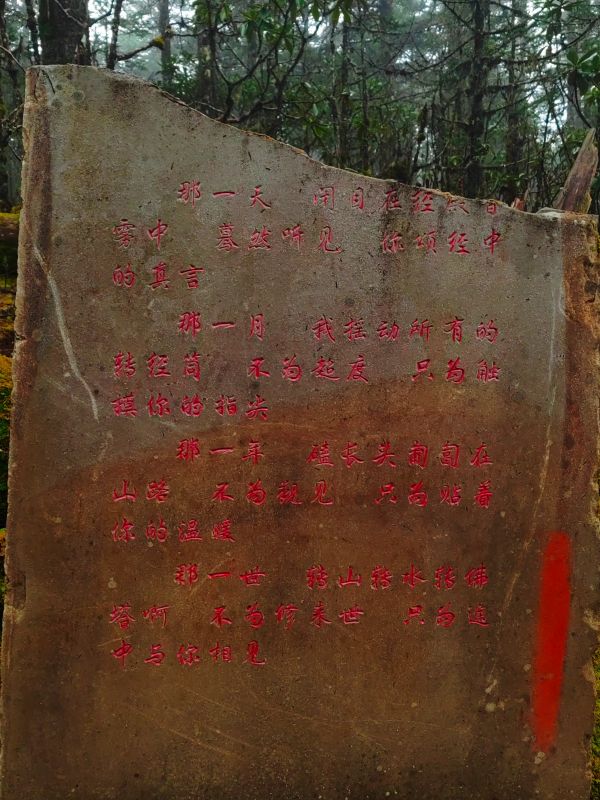 那一天 闭目在经殿香
雾中 蓦然听见 你颂经中
的真言
那一月 我摇动所有的
转经筒 不为超度 只为触
摸你的指尖
那一年 磕长头匍匐在
山路 不为觐见 只为贴着
你的温暖
那一世 转山转水转佛
塔啊 不为修来世 只为途
中与你相见